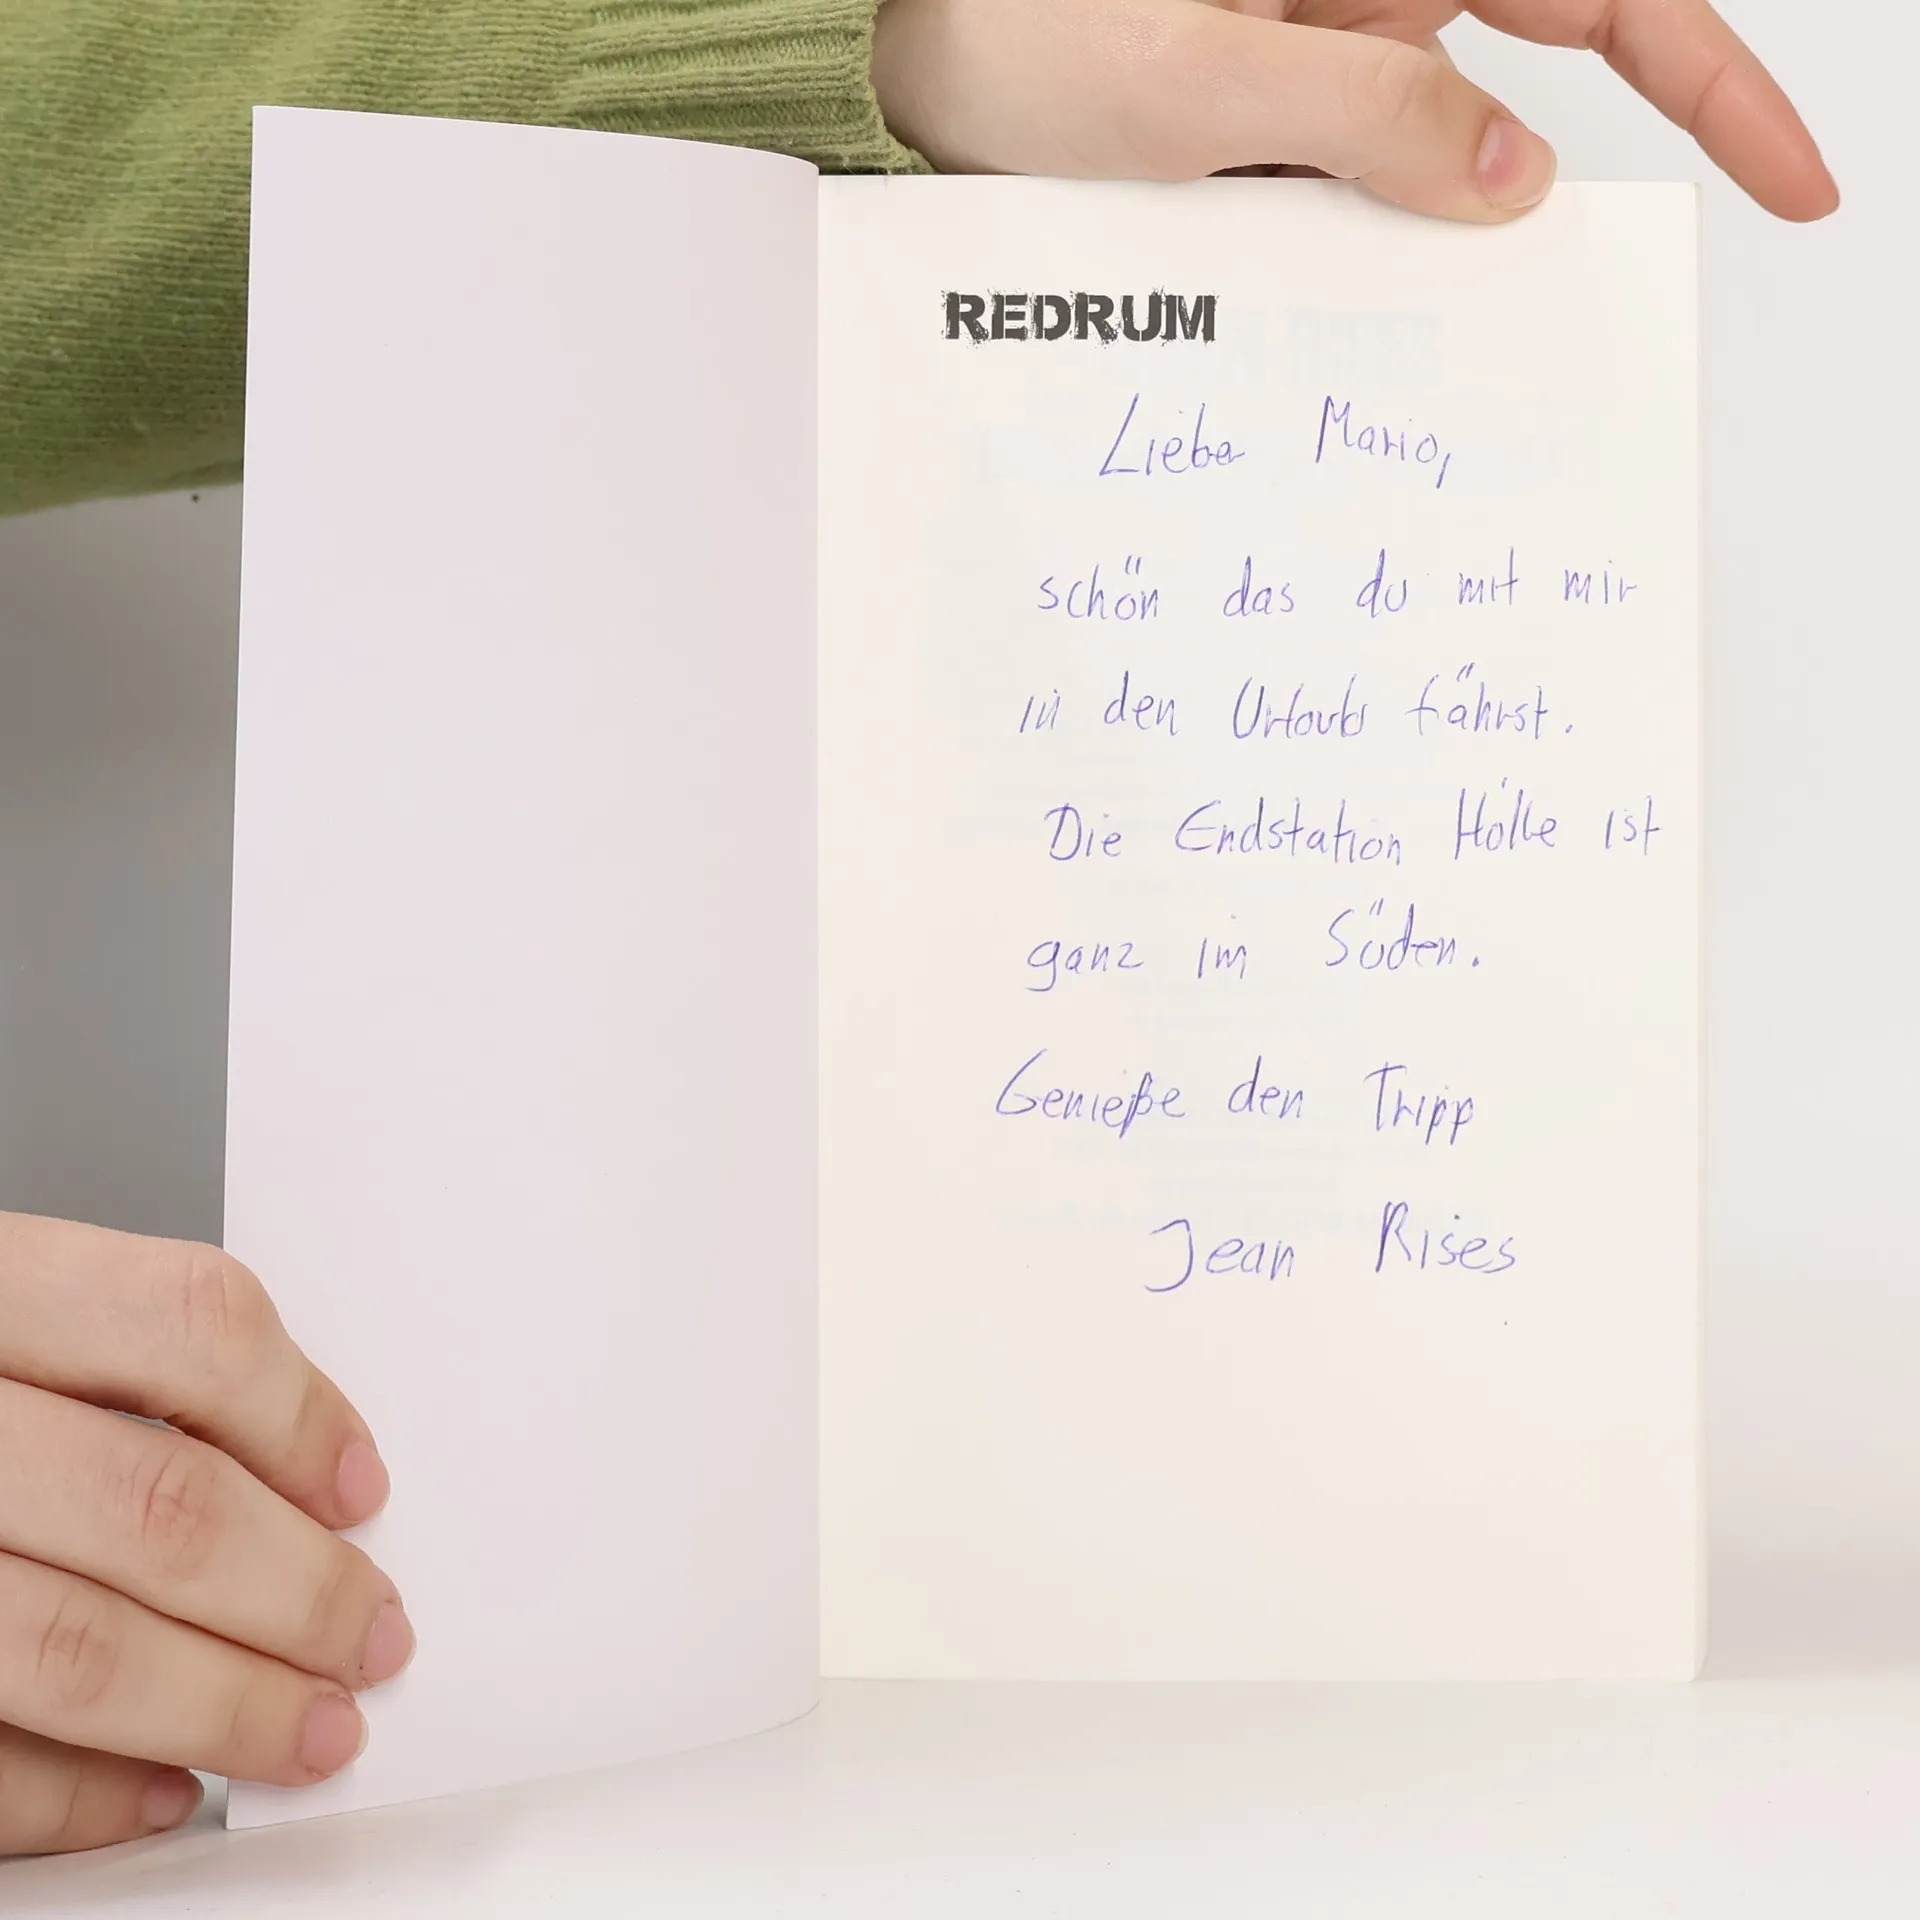 REDRUM
Lieber Mario,
schön das du mit mir
in den Urlaub fährst.
Die Endstation Hölle ist
ganz im Süden.
Genieße den Tripp
Jean Rises